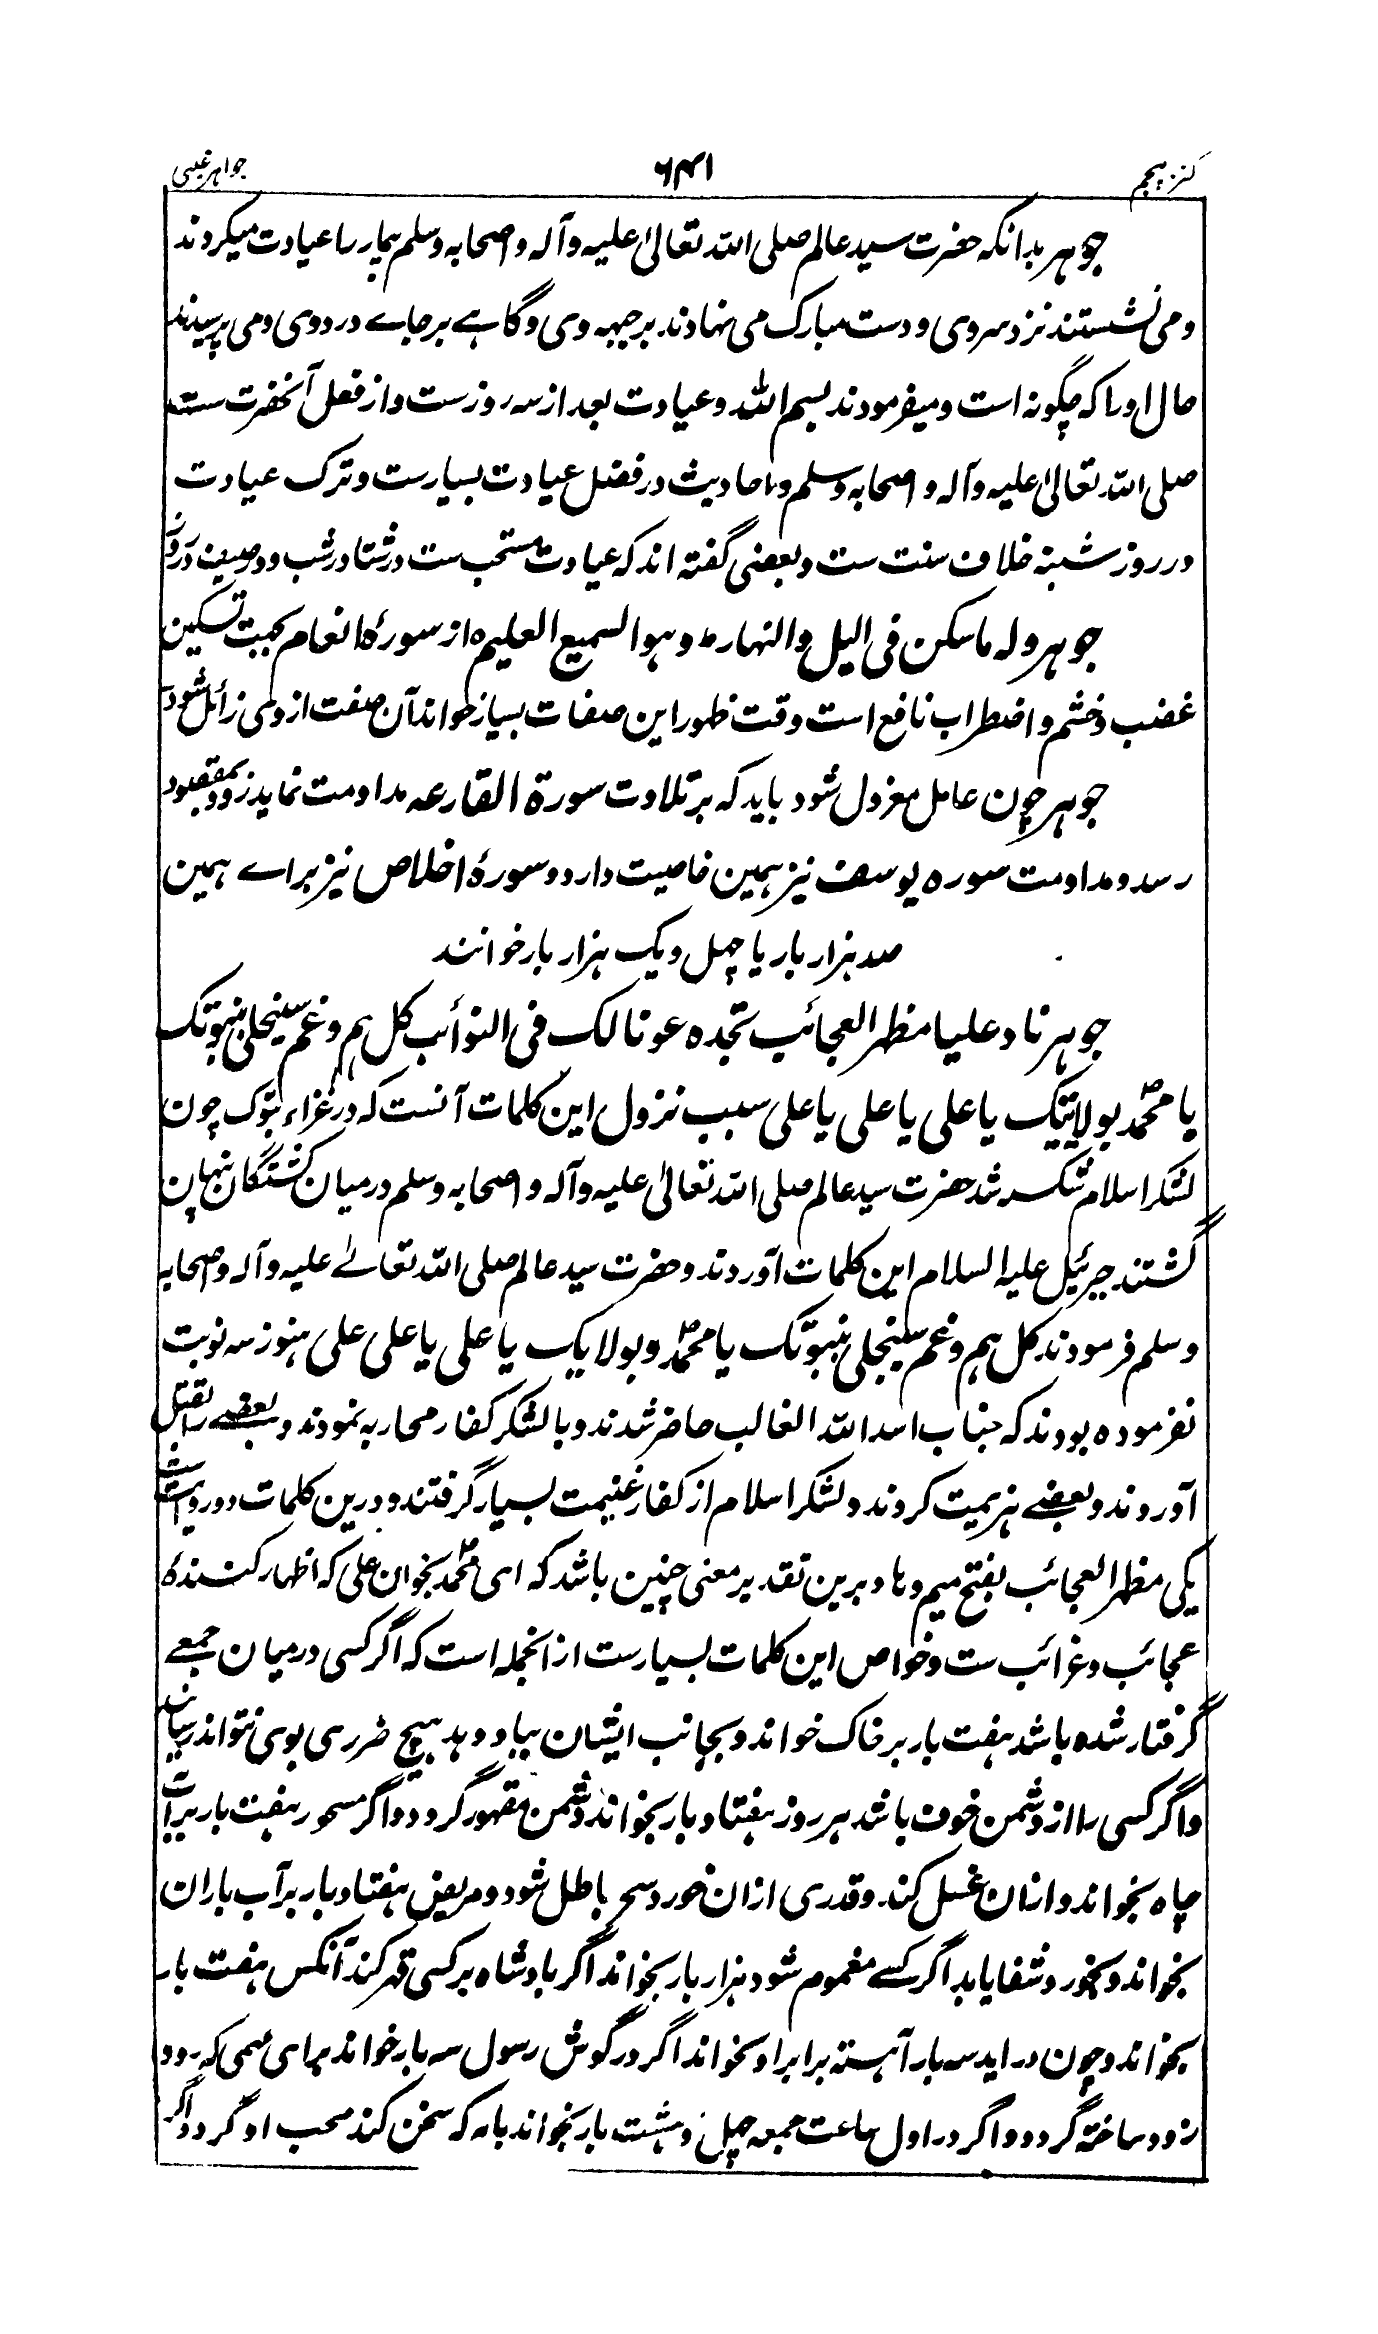 کنز پنجم
۶۴۱
جواهر غیبی
جوهر بدانکه حضرت سید عالم صلی الله تعالیٰ علیه وآله واصحابه وسلم بیمار را عیادت میکردند
ومی نشستند نزد سر وی ودست مبارک می نهادند بر جبهه وی وگاهے بر جاے درد وی ومی پرسیدند
حال او را که چگونه است ومیفرمودند بسم الله وعیادت بعد از سه روزست واز فعل آنحضرت ست
صلی الله تعالیٰ علیه وآله واصحابه وسلم واحادیث در فضل عیادت بسیارست وترک عیادت
در روز شنبه خلاف سنت ست وبعضی گفته اند که عیادت مستحب ست در شتا در شب ودر صیف در روز
جوهر وله ما سکن فی الیل والنهار ط وهو السمیع العلیم ہ از سورهٔ انعام بجهت تسکین
غضب وخشم واضطراب نافع است وقت ظهور این صفات بسیار خواند آن صفت از وی زائل شود
جوهر چون عامل معزول شود باید که بر تلاوت سورة القارعه مداومت نماید زود بمقصود
رسد ومداومت سوره یوسف نیز همین خاصیت دارد وسورهٔ اخلاص نیز براے همین
صد هزار بار یا چهل ویک هزار بار خوانند
جوهر ناد علیا مظهر العجائب تجده عونا لک فی النوائب کل هم وغم سینجلی بنبوتک
یا محمدؐ بولایتک یا علی یا علی یا علی سبب نزول این کلمات آنست که در غزاء تبوک چون
لشکر اسلام شکسته شد حضرت سید عالم صلی الله تعالیٰ علیه وآله واصحابه وسلم در میان کشتگان پنهان
گشتند جبرئیل علیه السلام این کلمات آوردند وحضرت سید عالم صلی الله تعالےٰ علیه وآله واصحابه
وسلم فرمودند کل هم وغم سینجلی بنبوتک یا محمدؐ وبولایک یا علی یا علی علی هنوز سه نوبت
نفرموده بودند که جناب اسد الله الغالب حاضر شدند وبا لشکر کفار محاربه نمودند وبعضے را بقتل
آوردند وبعضے هزیمت کردند ولشکر اسلام از کفار غنیمت بسیار گرفتند ودرین کلمات دو روایت ست
یکی مظهر العجائب بفتح میم وها وبرین تقدیر معنی چنین باشد که ای محمدؐ بخوان علی که اظهار کنندهٔ
عجائب وغرائب ست وخواص این کلمات بسیارست از انجمله است که اگر کسی درمیان جمعے
گرفتار شده باشد هفت بار بر خاک خواند وبجانب ایشان بباد دهد هیچ ضرری بوی نتواند رسانید
واگر کسی را از دشمن خوف باشد هر روز هفتاد بار بخواند دشمن مقهور گردد واگر مسحور هفت بار بر آب
چاه بخواند وازان غسل کند وقدری ازان خورد سحر باطل شود ومریض هفتاد بار بر آب باران
بخواند وبخورد شفا یابد اگر کسے مغموم شود هزار بار بخواند اگر بادشاه بر کسی قهر کند آنکس هفت بار
بخواند وچون در اید سه بار آهسته برابر او بخواند اگر در گوش رسول سه بار خواند برای مهمی که رود
زود ساخته گردد واگر در اول ساعت جمعه چهل وهشت بار بخواند باهر که سخن کند محب او گردد اگر